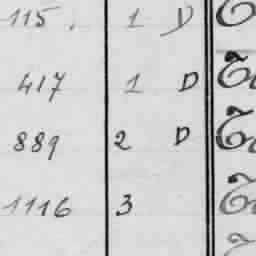 115. 1 D
417 1 D
889 2 D
1116 3